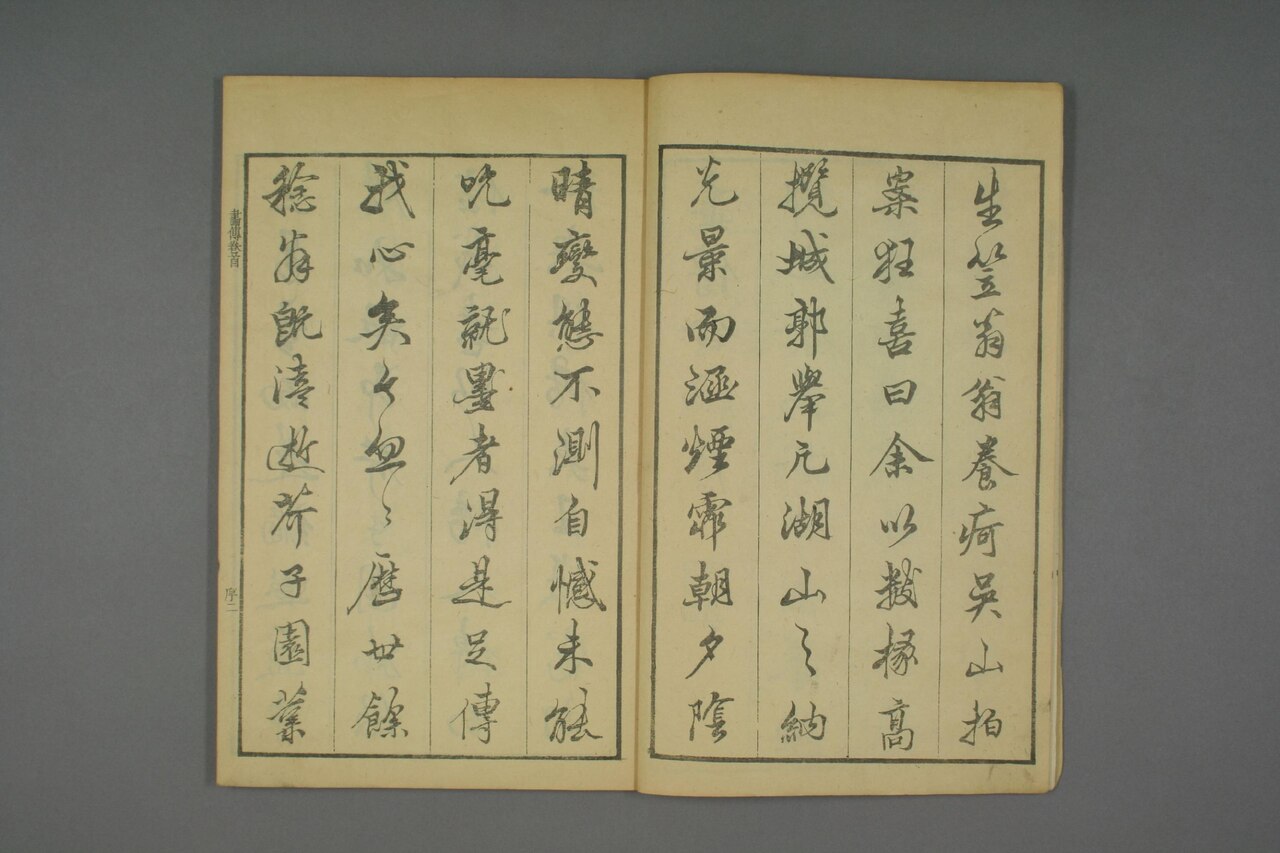 生笠翁翁養疴吳山拍
案狂喜曰余以數椽高
攬城郭舉凡湖山之納
光景而涵煙霏朝夕陰
晴變態不測自憾未能
吮毫就墨者得是足傳
我心矣今忽〻歷廿餘
稔翁既溘逝芥子園業
畫傳卷首
序二